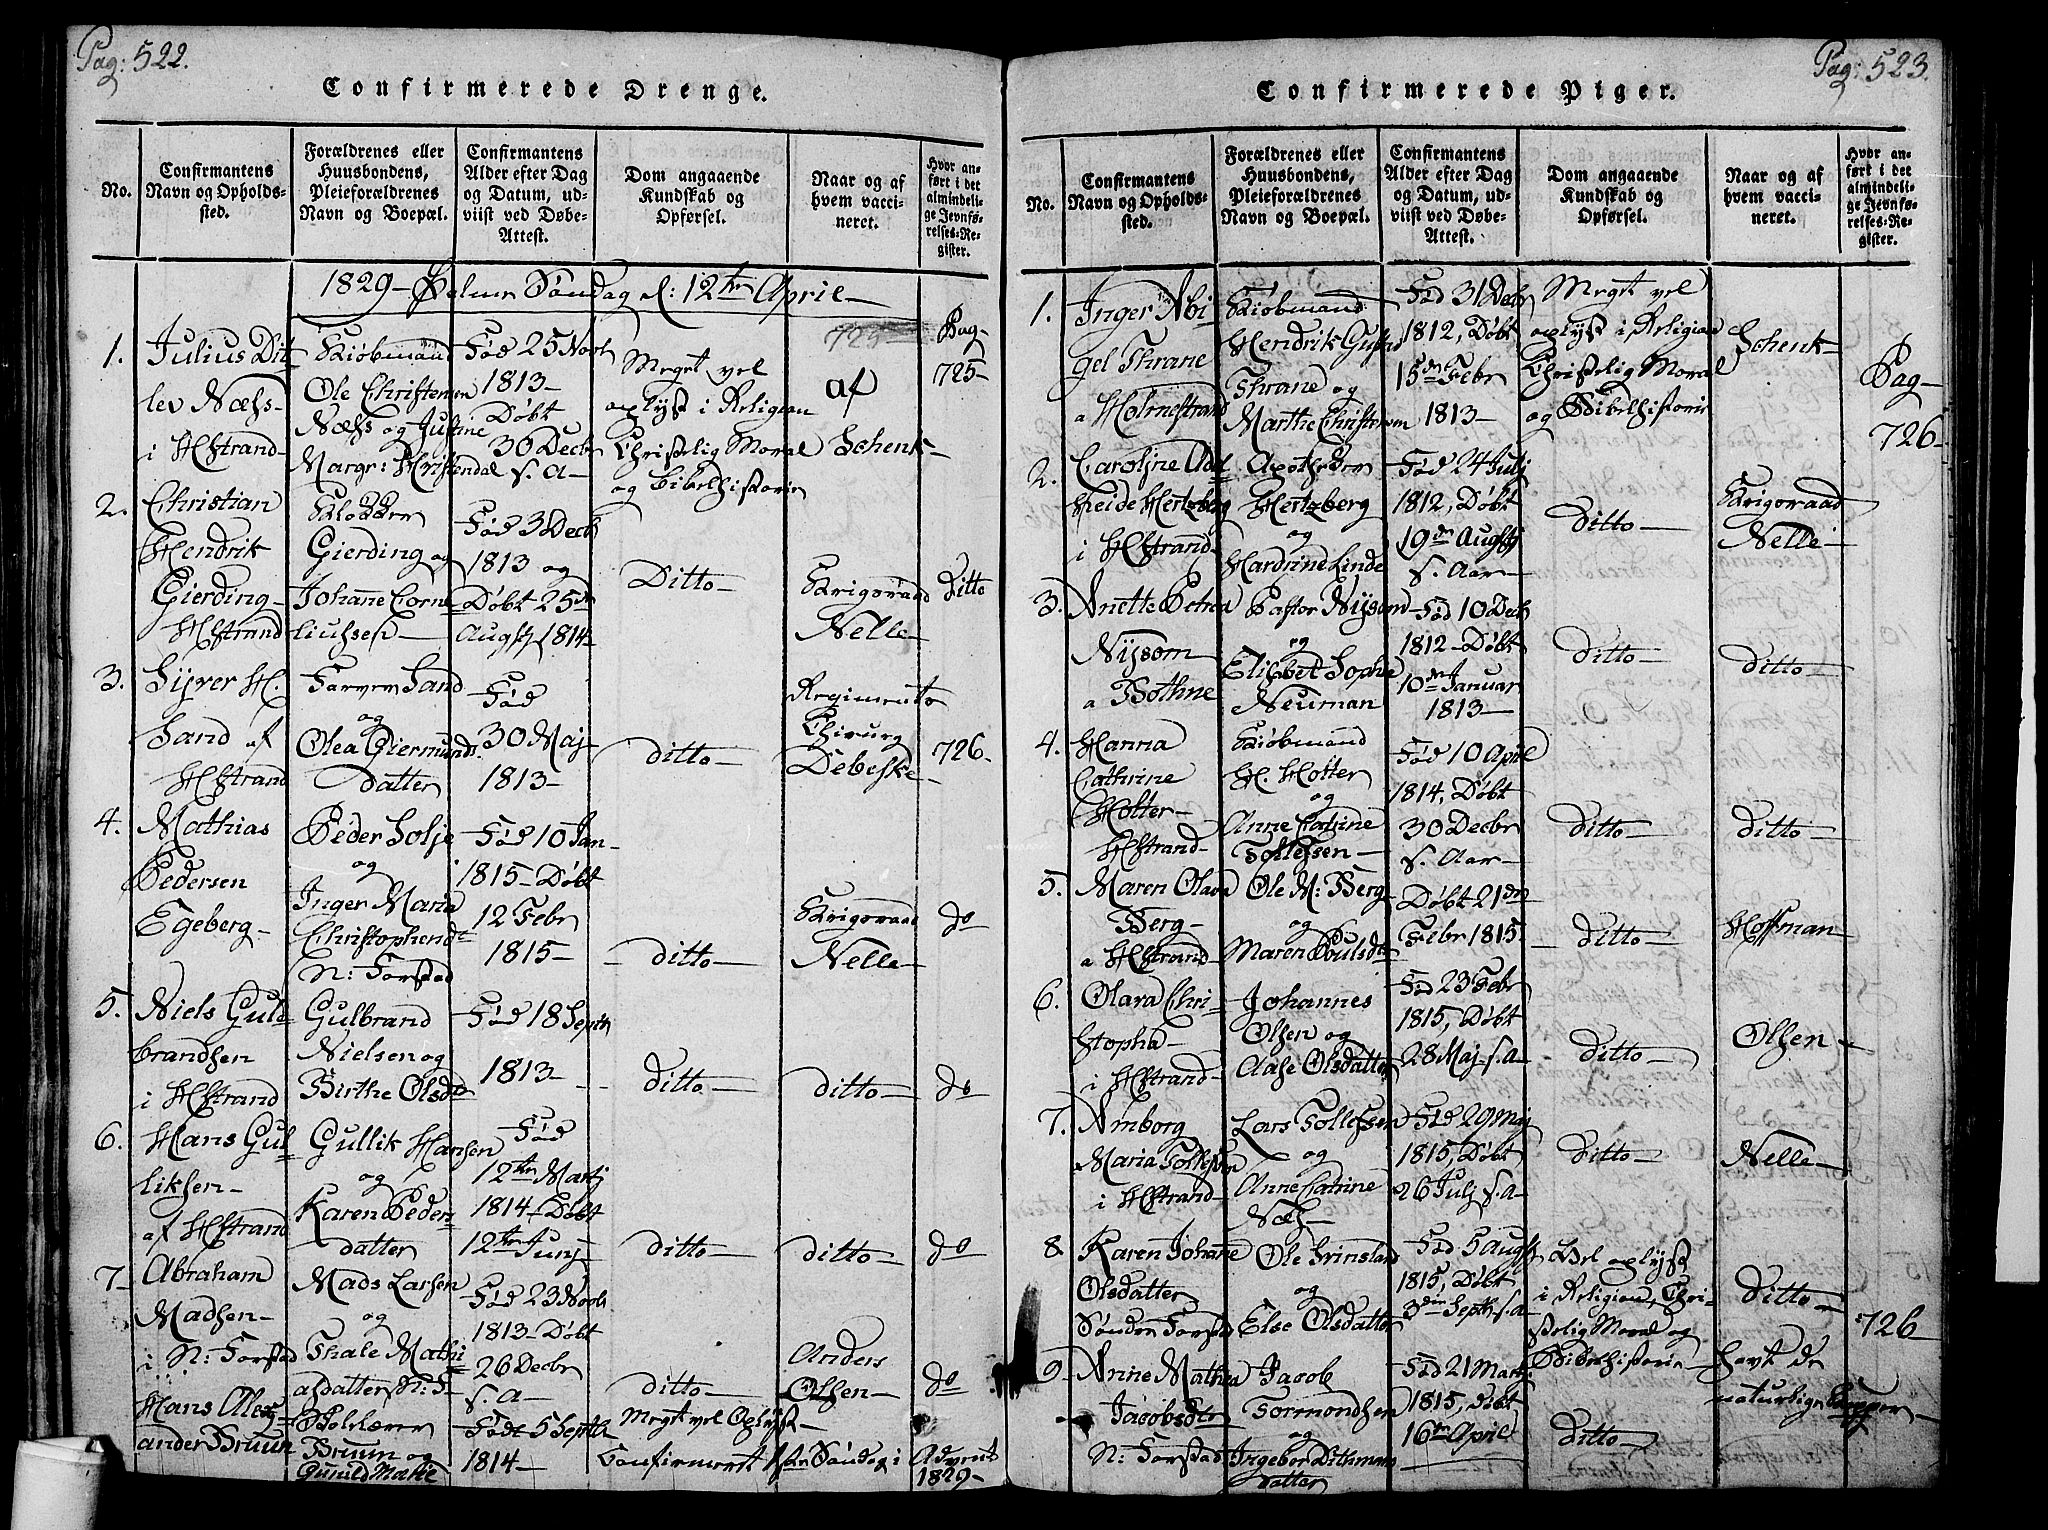 Pag: 522.
Confirmerede Drenge.
No.
Confirmantens
Navn og Opholds-
sted.
Forældrenes eller
Huusbondens,
Pleieforældrenes
Navn og Boepæl.
Confirmantens
Alder efter Dag
og Datum, ud-
viist ved Døbe-
Attest.
Dom angaaende
Kundskab og
Opførsel.
Naar og af
hvem vacci-
neret.
Hvor an-
ført i det
almindeli-
ge Jevnfø-
relses-Re-
gister.
1829 - Palme Søndag d: 12te April -
1.
Julius Dit
lev Næhs-
i HStrand-
Kiøbmand
Ole Christensen
Næhs og Justine
Margr: Christendal
Fød 25 Novb
1813-
Døbt
30 Decbr
s. A-
Meget vel
oplyst i Religion
Christelig Moral
og Bibelhistorie
725
af
Schenk-
Pag-
725-
2.
Christian
Hendrik
Gierding-
HStrand
Klokker
Gierding og
Johanne Corne
liussen-
Fød 3 Decb
1813 og
Døbt 25de
Augst 1814-
Ditto-
Krigsraad
Nelle-
Ditto
3.
Syver H.
Sand af
HStrand
Farver Sand
og
Olea Giermunds
datter
Fød
30 Maj-
1813-
ditto-
Regiments
Chirurg
Debeske-
726.
4.
Mathias
Pedersen
Egeberg-
Peder Solje
og
Inger Maria
Christophersdt
N: Forstad
Fød 10 Jan-
1815-Døbt
12 Febr
1815-
ditto-
Krigsraad
Nelle-
do
5.
Niels Guld
brandsen
i HStrand
Gulbrand
Nielsen og
Birthe Olsdtr
Fød 18 Septb
1813-
ditto-
ditto-
do
6.
Hans Gul
liksen-
af HStrand
Gullik Hansen
og
Karen Peders
datter
Fød
12te Martj
1814-Døbt
12te Junj
ditto-
ditto-
do
7.
Abraham
Madsen-
i N: Forstad
Mads Larsen
og
Thale Mathi
asdatter N: F
Fød 23 Novb
1813-Døbt
26 Decbr
s. A-
ditto-
Anders
Olsen-
do
Hans Alex
ander Bruun
Bruun og
Gunild Mette
Født 5 Septb
1814-
Meget vel Oplyst
Confirmeret 1ste Søndag i Advent
1829-
Pag: 523.
Confirmerede Piger.
No.
Confirmantens
Navn og Opholds-
sted.
Forældrenes eller
Huusbondens,
Pleieforældrenes
Navn og Boepæl.
Confirmantens
Alder efter Dag
og Datum, ud-
viist ved Døbe-
Attest.
Dom angaaende
Kundskab og
Opførsel.
Naar og af
hvem vacci-
neret.
Hvor an-
ført i det
almindeli-
ge Jevnfø-
relses-Re-
gister.
1.
Inger Abi
gel Thrane
a Holmestrand
Kiøbmand
Hendrik
Thrane og
Marthe Christensen
Fød 31 Decbr
1812, Døbt
15de Febr
1813-
Meget vel
oplyst i Religion
Christelig Moral
og Bibelhistorie
Schenk-
Pag-
726-
2.
Caroljne Adel
heide Hertzberg
i HStrand-
Apotheker
Hertzberg
og
Hardrine Linde
Fød 24 Julj
1812, Døbt
19de Augstj
s. Aar-
ditto-
Krigsraad
Nelle-
3.
Anette Petrea
Nysom
a Bothne
Pastor Nysom
og
Elisbet Sophie
Neuman
Fød 10 Decb
1812-Døbt
10de Januar
1813-
ditto-
ditto-
4.
Hanna
Cathrine
Holter-
HStrand-
Kiøbmand
H. Holter
og
Anne Catrine
Tollefsen-
Fød 10 April
1814, Døbt
30 Decbr
s. Aar-
ditto-
ditto-
5.
Maren Olava
Berg-
a HStrand-
Ole M: Berg-
og
Maren Poulsdtr
Døbt 21de
Febr 1815.
ditto-
Hoffman-
6.
Olava Chri-
stopha-
i HStrand-
Johannes
Olsen og
Aase Olsdatter
Fød 23 Febr
1815, Døbt
28 Maj-s.a-
ditto-
Olsen-
7.
Amborg
Maria Tollefsen
i HStrand-
Lars Tollefsen
og
Anne Catrine
Næs-
Fød 29 Maj
1815, Døbt
26 Julj s.a-
ditto-
Nelle-
8
Karen Johanne
Olsdatter
Sønden Forstad
Ole Grinstad
og
Else Olsdatter
Fød 5 Augst
1815, Døbt
3die Septb. s.a-
Vel oplyst
i Religion, Chri-
stelig Moral og
Bibelhistorie-
ditto-
726
9-
Anne Mathea
Jacobsdtr
N: Forstad
Jacob
Tormondsen
og
Ingebor Dithmans
datter
Fød 21 Martj
1815, Døbt
16de April
ditto-
havt de
naturlige Kopper-